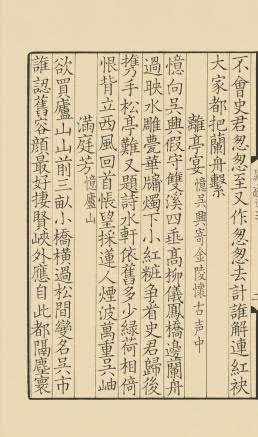 不會史君怱怱至又作怱怱去計誰解連紅袂
大家都把蘭舟繫
離亭宴憶吳興寄金陵懷古声中
憶向吳興假守雙溪四垂髙柳儀鳳橋邊蘭舟
過映水雕甍華牖燭下小紅粧争看史君歸後
携手松亭難又題詩水軒依舊多少綠荷相倚
恨背立西風囬首悵望採蓮人煙波萬重吳岫
滿庭芳憶廬山
欲買廬山山前三畝小橋橫過松間變名吳市
誰認舊容顔最好棲賢峽外應自此都隔塵寰